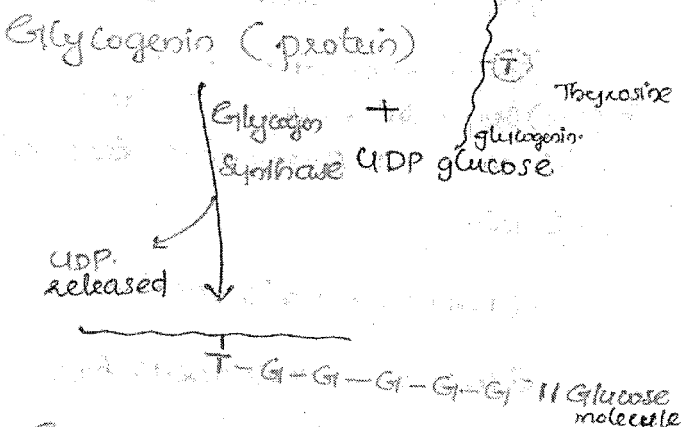 Glycogenin (protein)
T
Thyrosine
Glycogen +
glycogenin.
Synthase UDP glucose
UDP.
released
T-G-G-G-G-G 11 Glucose
molecule